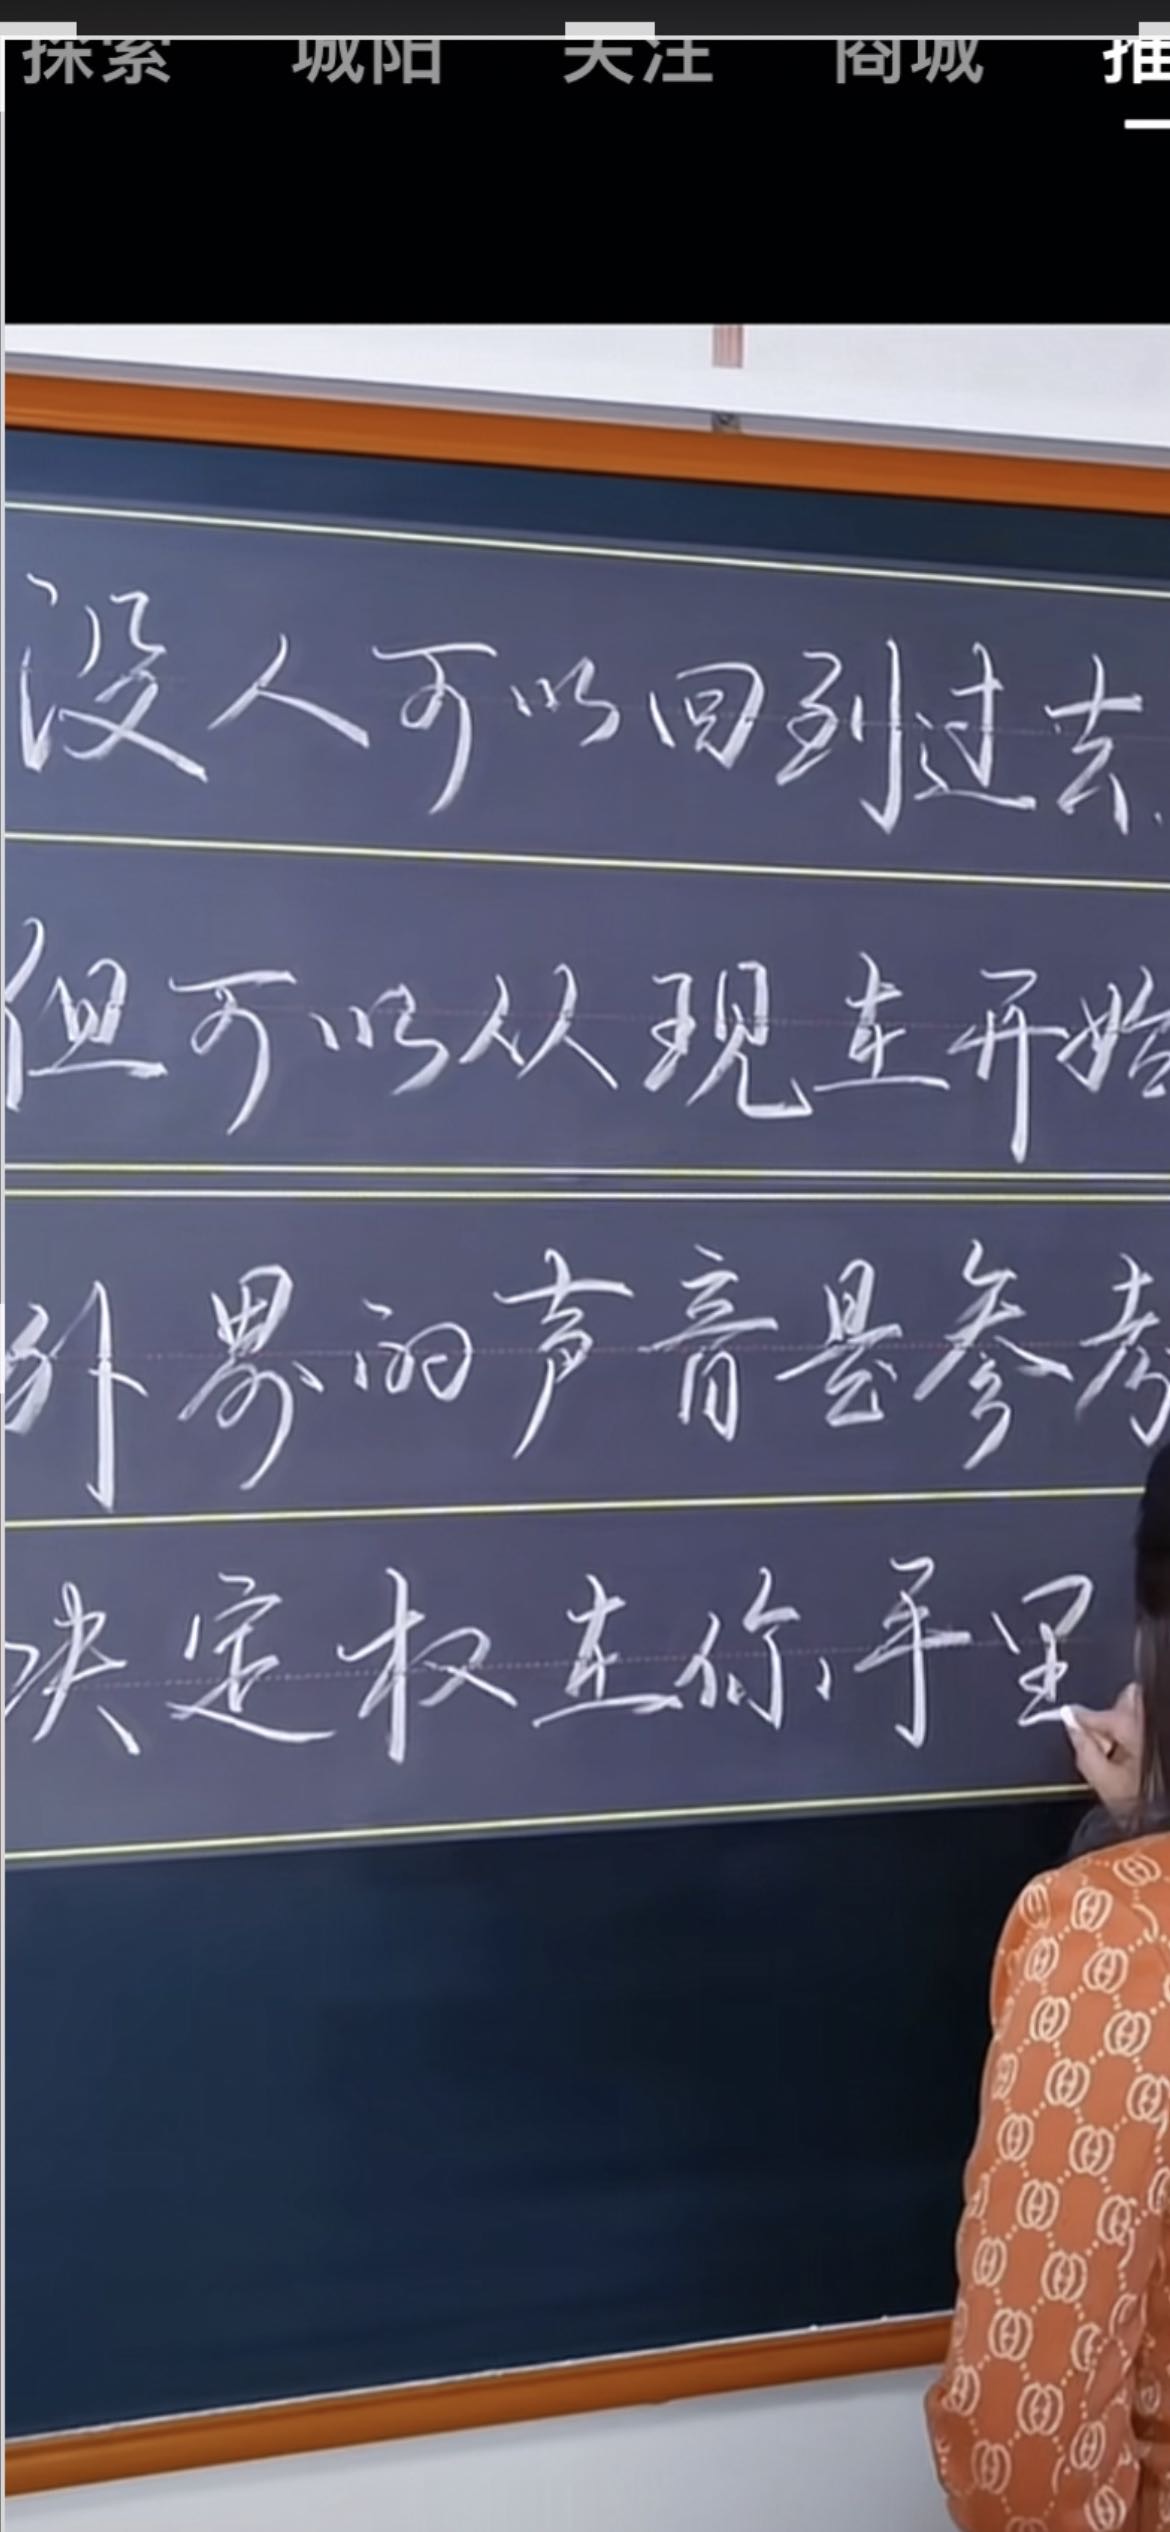 探索 城阳 关注 商城 推
没人可以回到过去.
但可以从现在开始
外界的声音是参考
决定权在你手里